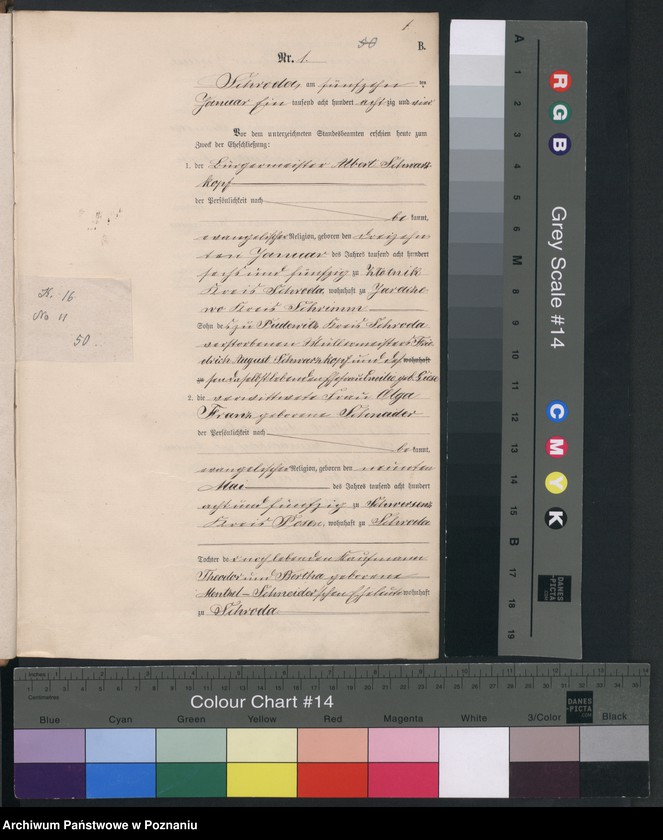 1.
50
B.
Nr. 1.
Schroda, am fünfzehn ten
Januar ein tausend acht hundert acht zig und vier
Vor dem unterzeichneten Standesbeamten erschien heute zum
Zweck der Eheschließung:
1. der Bürgermeister Albert Schwarz-
kopf
der Persönlichkeit nach
be kannt,
evangelischer Religion, geboren den dreizehn
ten Januar des Jahres tausend acht hundert
sechs und fünfzig zu Zlotnik
Kreis Schroda, wohnhaft zu
Kreis Schrimm
Sohn des zu Pudewitz Kreis Schroda
verstorbenen Mühlenmeisters Frie-
drich August Schwarzkopf und des wohnhaft
zu geb. Giese
2. die verwittwete Frau Olga
Franz geborene Schneider
der Persönlichkeit nach
be kannt,
evangelischer Religion, geboren den neunten
Mai des Jahres tausend acht hundert
acht und fünfzig zu Schwersenz
Kreis Posen, wohnhaft zu Schroda
Tochter der noch lebenden Kaufmann
Theodor und Bertha geborene
Schneider'schen Eheleute wohnhaft
zu Schroda
K. 16
No 11
50
A 1 2 3 4 5 6 M 8 9 10 11 12 13 14 15 B 17 18 19
R G B
Grey Scale #14
C M Y K
DANES-PICTA.COM
Inches
Centimetres
Colour Chart #14
DANES-PICTA.COM
Blue Cyan Green Yellow Red Magenta White 3/Color Black
Archiwum Państwowe w Poznaniu